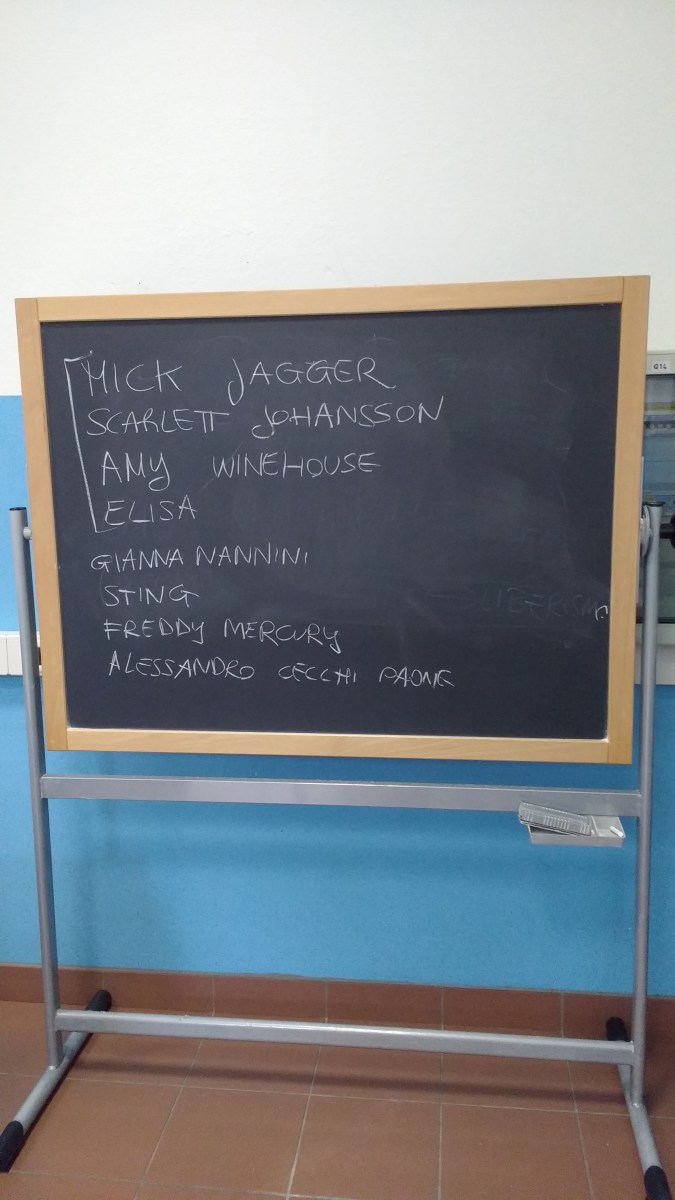 MICK JAGGER
SCARLETT JOHANSSON
AMY WINEHOUSE
ELISA
GIANNA NANNINI
STING
FREDDY MERCURY
ALESSANDRO CECCHI PAONE